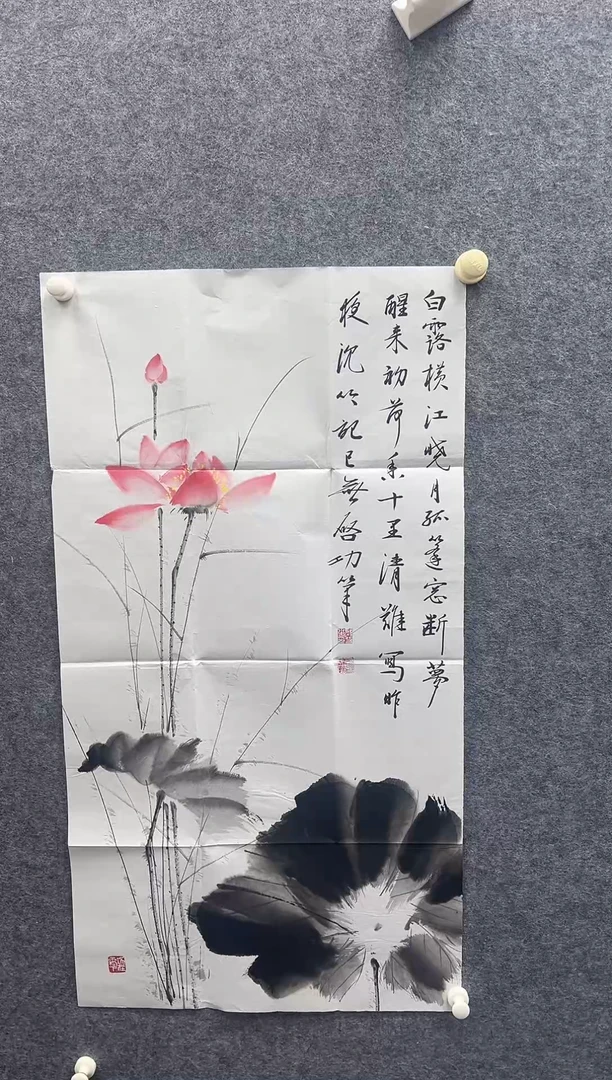 白露横江晓月孤篷窓断夢
醒来初荷香十里清难写昨
夜沉吟記已無启功筆